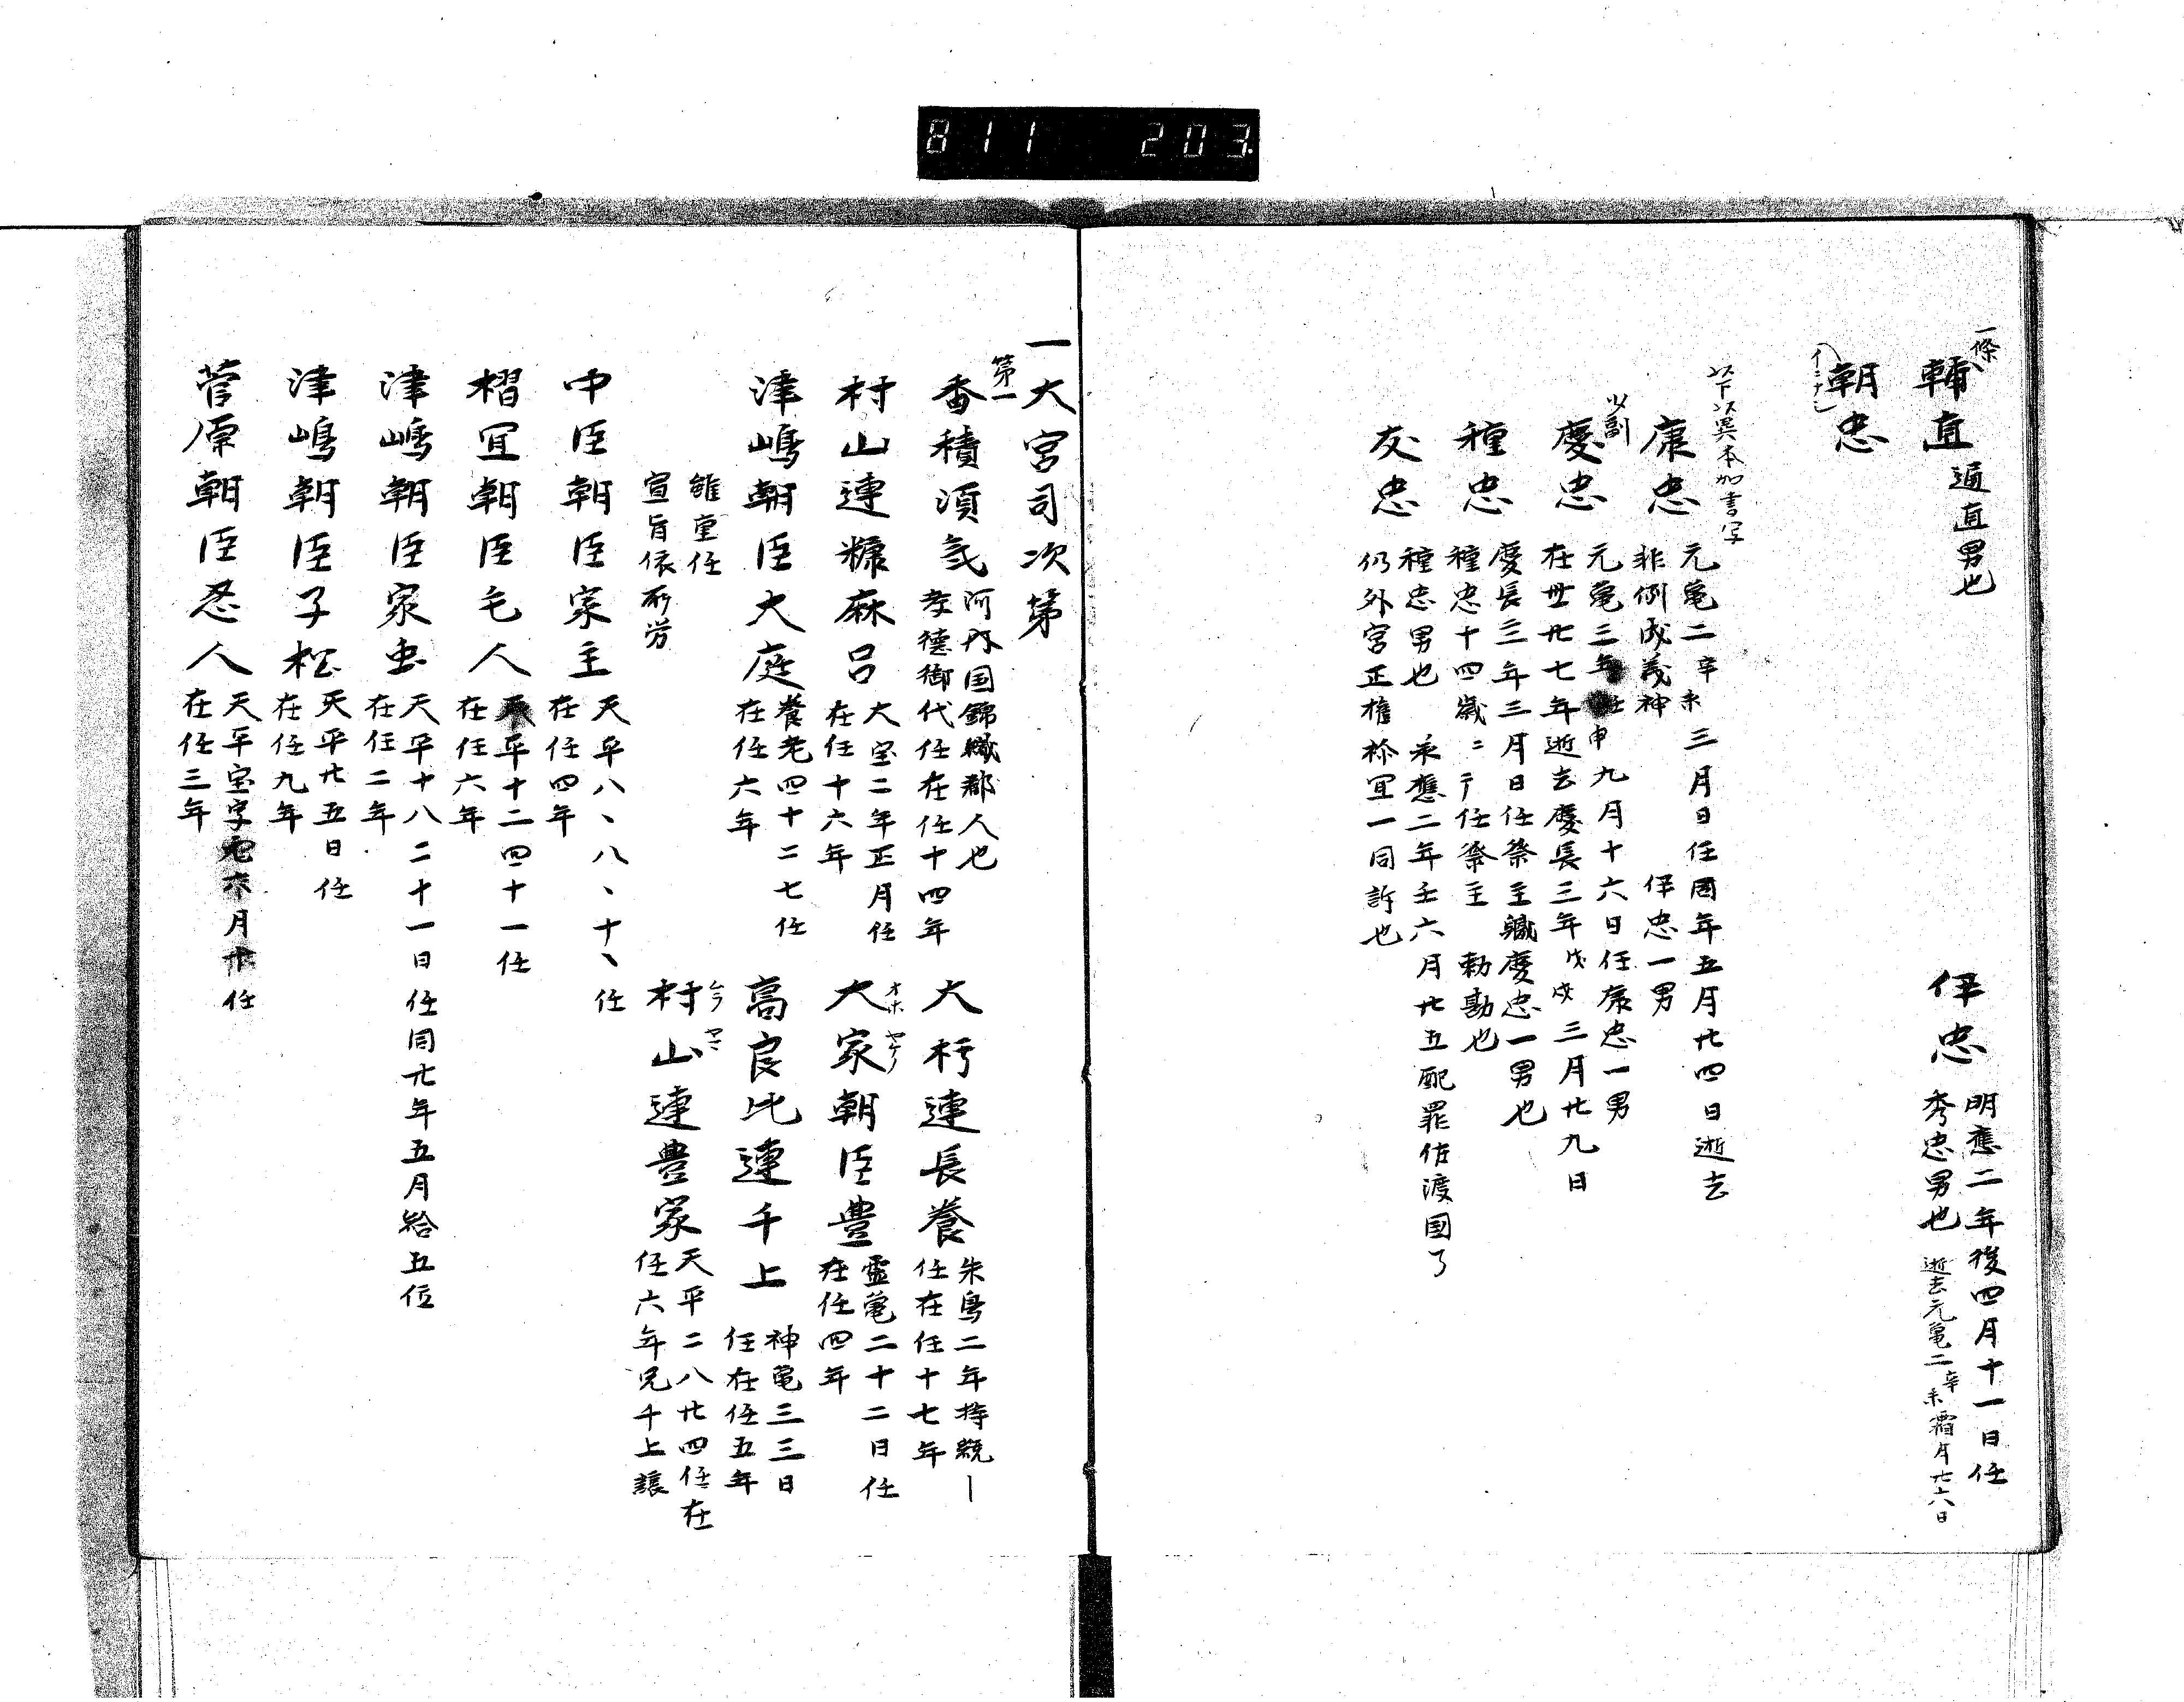 811 203
一條
輔直 通直男也
伊忠 明應二年後四月十一日任
秀忠男也 逝去元亀二辛未霜月廿六日
朝忠
以下以異本加書写
康忠 元亀二辛未三月日任同年五月廿四日逝去
非例成義神 伊忠一男
慶忠 元亀三年壬申九月十六日任康忠一男
在世廿七年逝去慶長三年戊戌三月廿九日
種忠 慶長三年三月日任祭主職慶忠一男也
種忠十四歳ニテ任祭主 勅勘也
友忠 種忠男也 承應二年壬六月廿五配罪佐渡国了
仍外宮正権祢宜一同訴也
一大宮司次第
第一
香積須気 河内国錦織郡人也
孝徳御代任在任十四年
大朽連長養 朱鳥二年持統
任在任十七年
村山連糠麻呂 大宝二年正月任
在任十六年
大家朝臣豊 霊亀二十二日任
オホ ヤケノ
在任四年
津嶋朝臣大庭 養老四十二七任
在任六年
高良比連千上 神亀三三日
任在任五年
雖重任
宣旨依所労
村山連豊家 天平二八廿四任在
ムラ ヤマ
任六年兄千上譲
中臣朝臣家主 天平八、八、十、任
在任四年
楷宜朝臣毛人 天平十二四十一任
在任六年
津嶋朝臣家虫 天平十八二十一日任同廿年五月給五位
在任二年
津嶋朝臣子松 天平廿五日任
在任九年
菅原朝臣忍人 天平宝字月任
在任三年